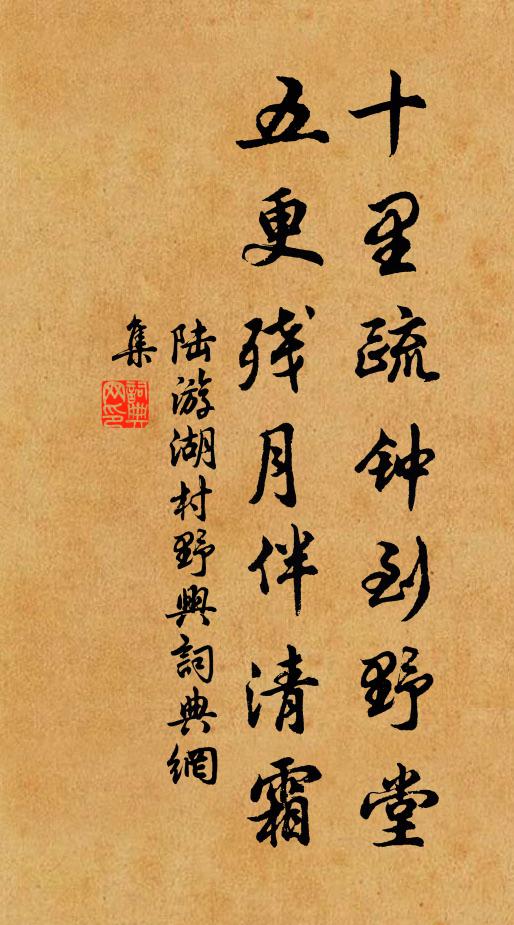 十里疏钟到野堂
五更残月伴清霜
陆游湖村野興詞典網
集
詞典
网印